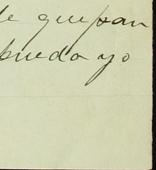 de quepan
puedo yo